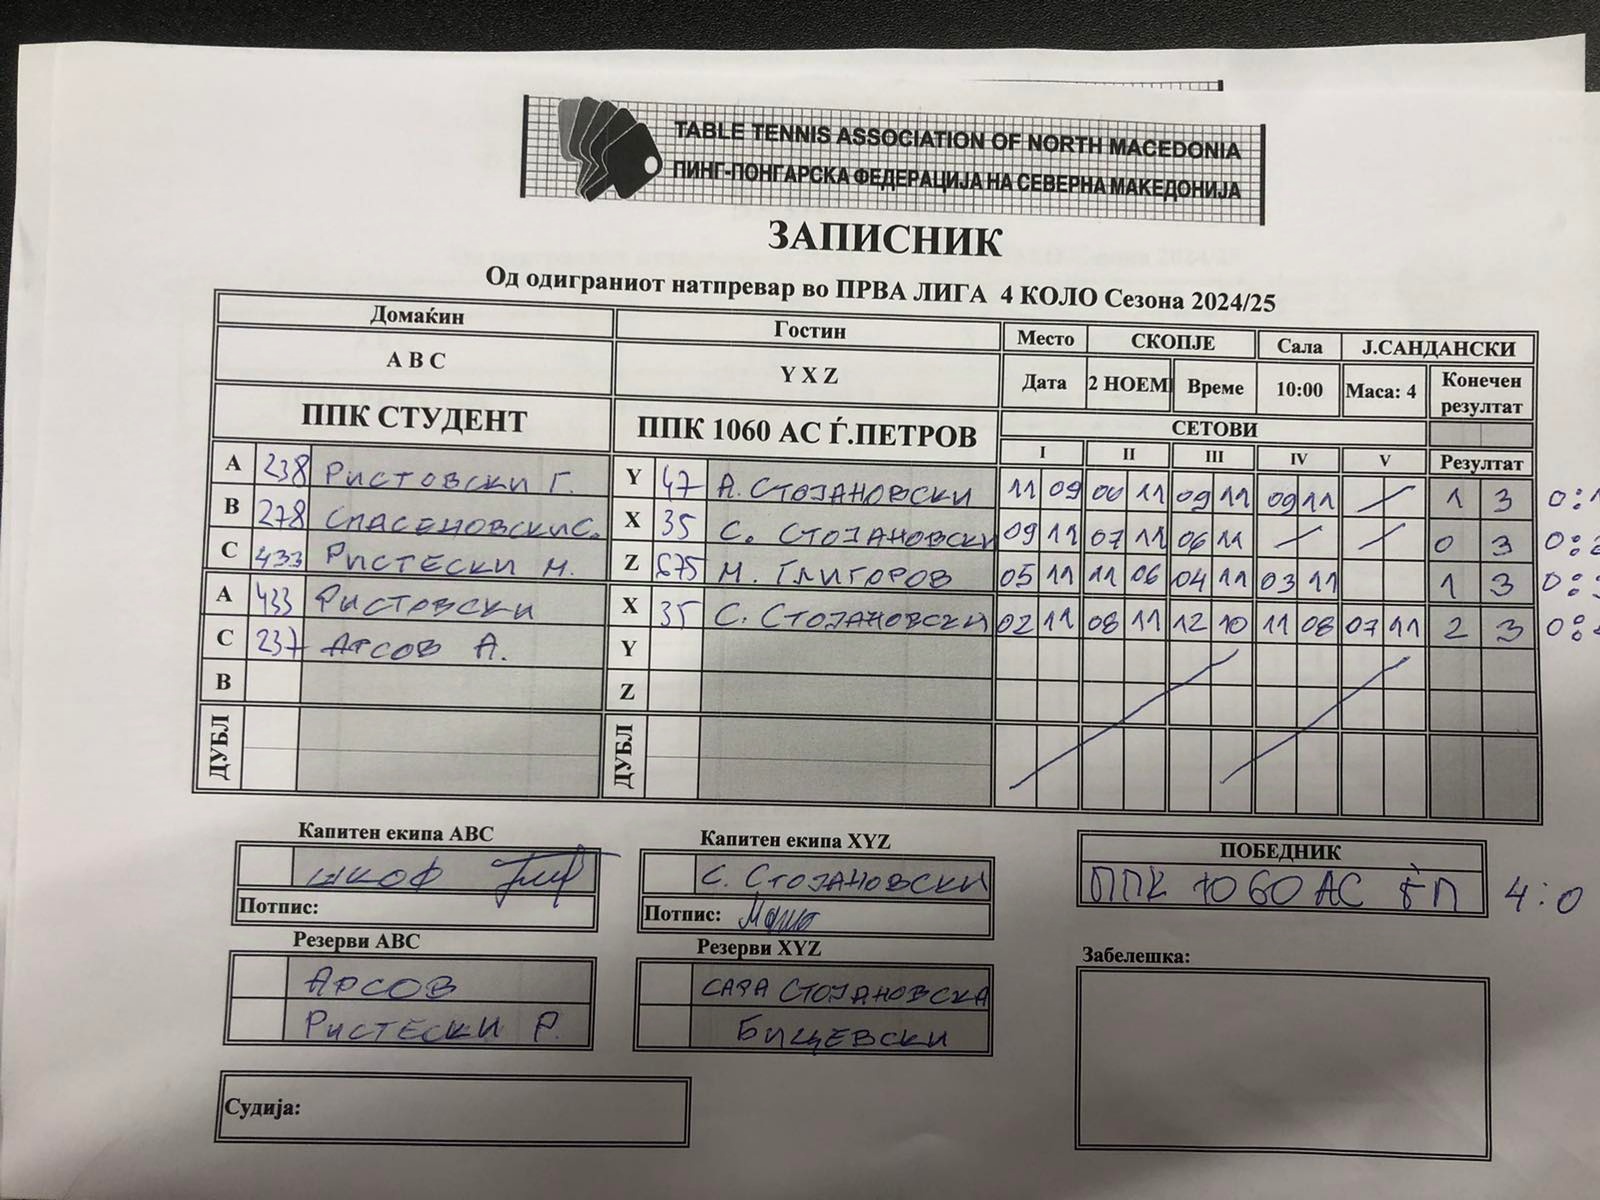 TABLE TENNIS ASSOCIATION OF NORTH MACEDONIA
ПИНГ-ПОНГАРСКА ФЕДЕРАЦИЈА НА СЕВЕРНА МАКЕДОНИЈА
ЗАПИСНИК
Од одиграниот натпревар во ПРВА ЛИГА 4 КОЛО Сезона 2024/25
Домаќин Гостин Место СКОПЈЕ Сала Ј.САНДАНСКИ
A B C Y X Z Дата 2 НОЕМ Време 10:00 Маса: 4 Конечен резултат
ППК СТУДЕНТ ППК 1060 АС Ѓ.ПЕТРОВ СЕТОВИ
I II III IV V Резултат
A 238 РИСТОВСКИ Г. Y 47 А. СТОЈАНОВСКИ 11 09 06 11 09 11 09 11 / 1 3 0:
B 278 СПАСЕНОВСКИ С. X 35 С. СТОЈАНОВСКИ 09 11 07 11 06 11 / / 0 3 0:
C 433 РИСТЕСКИ М. Z 675 М. ГЛИГОРОВ 05 11 11 06 04 11 03 11 1 3 0:
A 433 РИСТОВСКИ X 35 С. СТОЈАНОВСКИ 02 11 08 11 12 10 11 08 07 11 2 3 0:
C 237 АРСОВ А. Y
B Z
ДУБЛ ДУБЛ
Капитен екипа ABC Капитен екипа XYZ ПОБЕДНИК
ШКОФ С. СТОЈАНОВСКИ ППК 1060 АС ЃП 4:0
Потпис: Потпис:
Резерви ABC Резерви XYZ Забелешка:
АРСОВ САРА СТОЈАНОВСКА
РИСТЕСКИ Р. БИЦЕВСКИ
Судија: